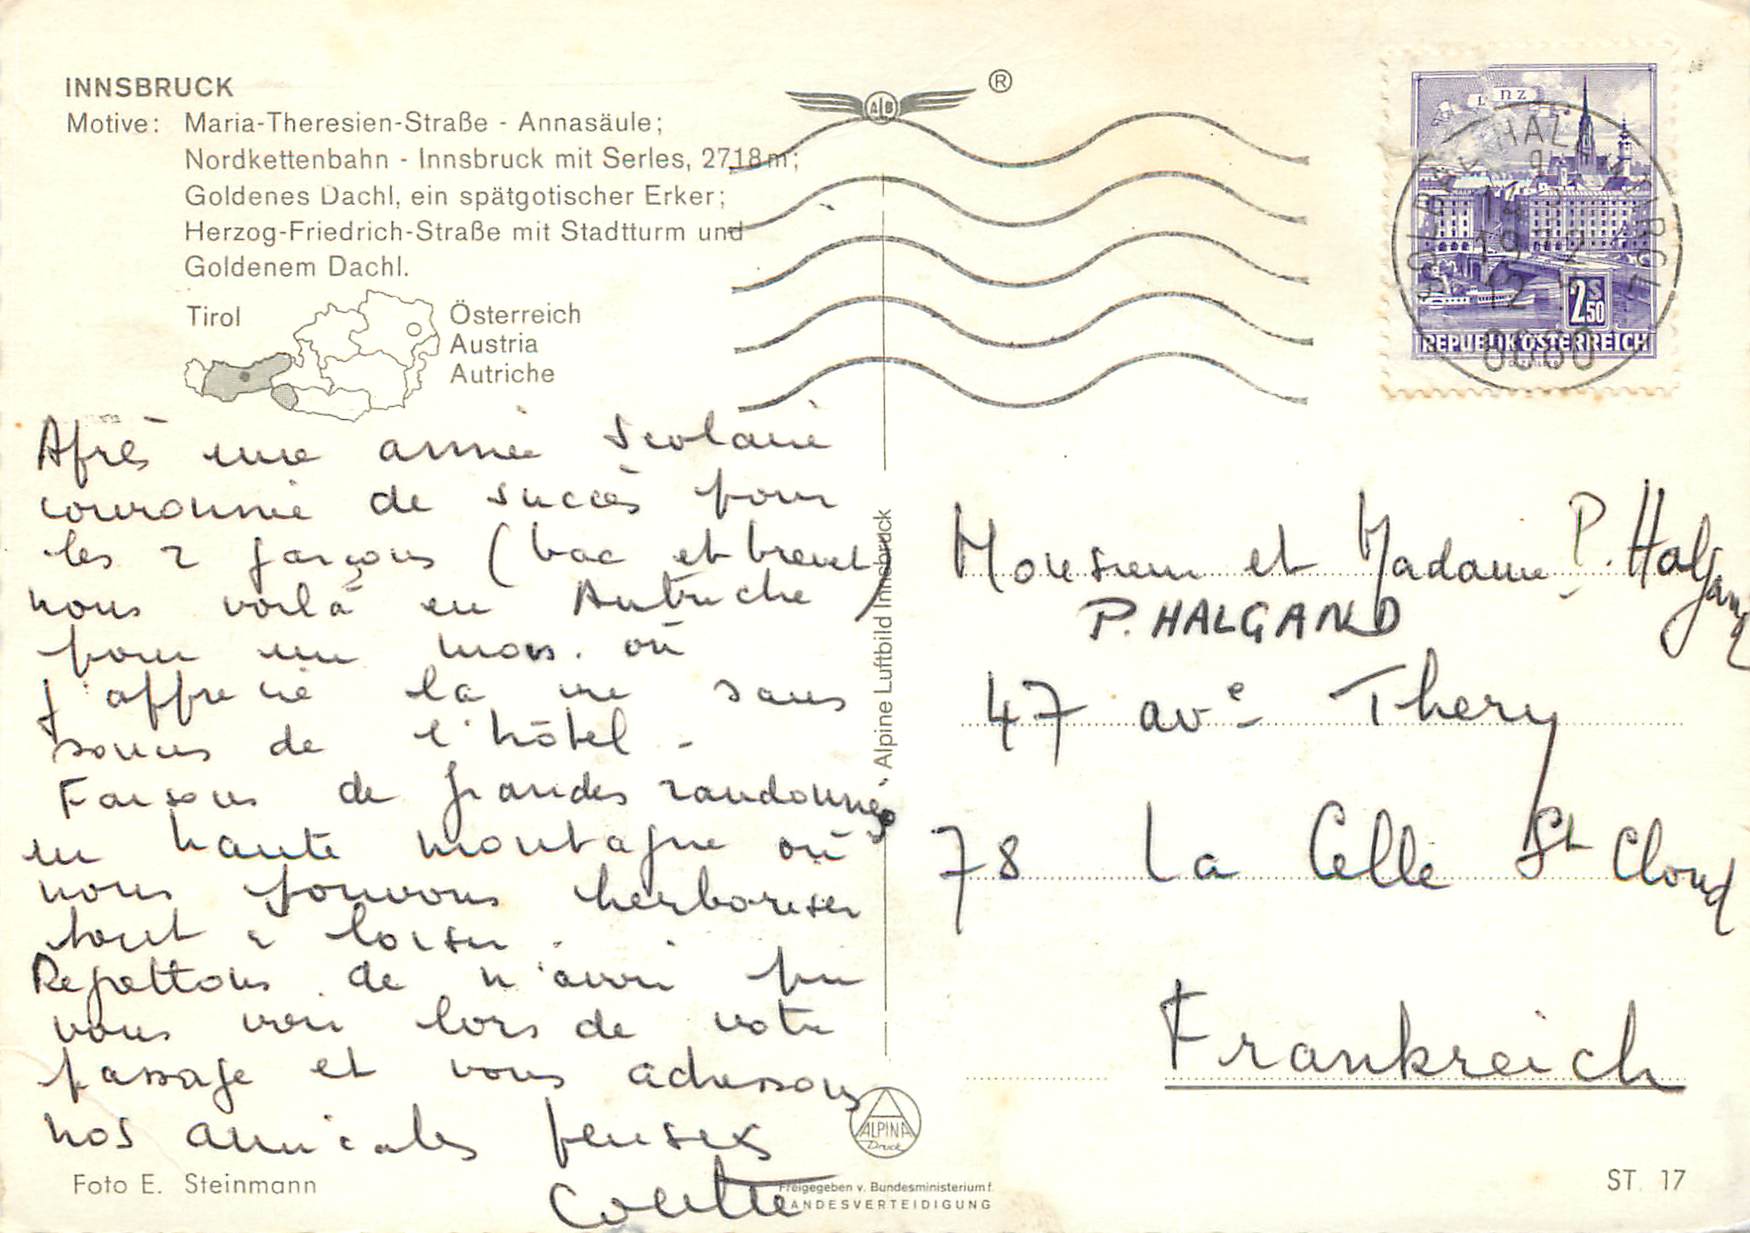 INNSBRUCK
Motive: Maria-Theresien-Straße - Annasäule;
Nordkettenbahn - Innsbruck mit Serles, 2718m;
Goldenes Dachl, ein spätgotischer Erker;
Herzog-Friedrich-Straße mit Stadtturm und
Goldenem Dachl.
Tirol
Österreich
Austria
Autriche
Après une année scolaire
couronnée de succès pour
les 2 garçons (bac et brevet)
nous voilà en Autriche
pour un mois. où
j'apprécie la vie sans
soucis de l'hôtel -
Faisons de grandes randonnées
en haute montagne où
nous pouvons herboriser
tout à loisir.
Regrettons de n'avoir pu
vous voir lors de votre
passage et vous adressons
nos amicales pensées
Colette
Foto E. Steinmann
ALB
®
Alpine Luftbild Innsbruck
ALPINA
Druck
Freigegeben v. Bundesministerium f.
LANDESVERTEIDIGUNG
LINZ
2S
50
REPUBLIK ÖSTERREICH
Monsieur et Madame P. Halgand
P. HALGAND
47 ave Thery
78 La Celle St Cloud
Frankreich
ST. 17